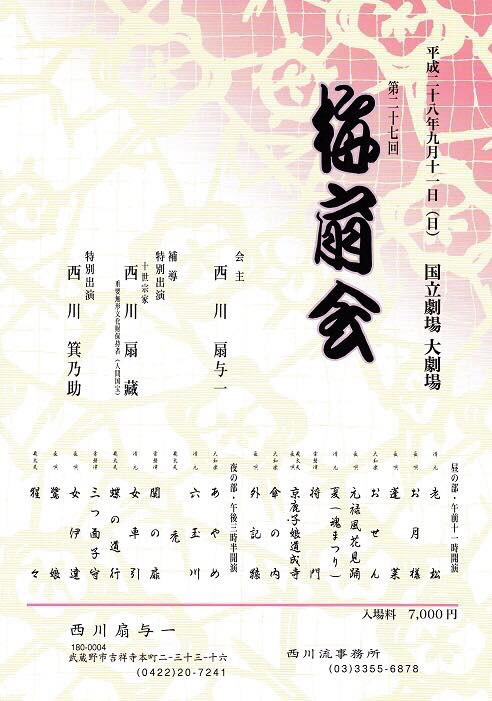 平成二十八年九月十一日（日） 国立劇場 大劇場
第二十七回
梅扇会
会主
西川扇与一
補導
特別出演
十世宗家
西川扇藏
重要無形文化財保持者（人間国宝）
特別出演
西川箕乃助
昼の部・午前十一時開演
清元 老松
長唄 お月様
長唄 蓬莱
大和楽 おせん
元禄風花見踊
清元 夏（魂まつり）
常磐津 将門
京鹿子娘道成寺
大和楽 傘の内
長唄 外記猿
夜の部・午後三時半開演
大和楽 あやめ
清元 六玉川
禿
常磐津 関の扉
清元 女車引
義太夫 蝶の道行
常磐津 三つ面子守
長唄 女伊達
長唄 鷺娘
義太夫 猩々
入場料 7,000円
西川扇与一
180-0004
武蔵野市吉祥寺本町二-三十三-十六
(0422)20-7241
西川流事務所
(03)3355-6878